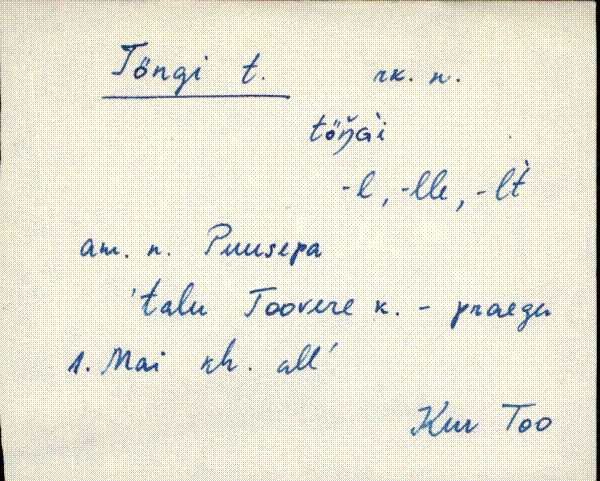 Töngi t. rk. n.
töŋ̆G̀i
-l, -lle, -lt̀
am. n. Puusepa
'talu Toovere k. - praegu
1. Mai kh. all'
Kur Too